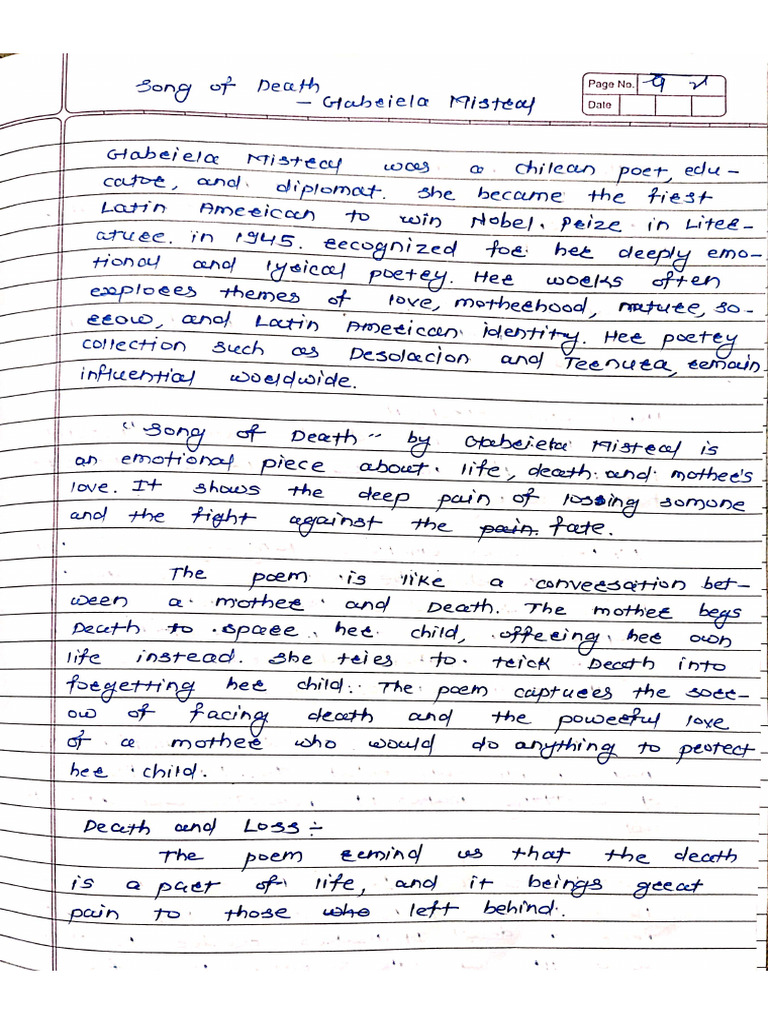 Song of Death
- Gabriela Mistral
Page No.
Date
Gabriela Mistral was a chilean poet, edu-
cator, and diplomat. She became the first
Latin American to win Nobel. Prize in Liter-
ature. in 1945. recognized for her deeply emo-
tional and lysical poetry. Her works often
explores themes of love, motherhood, nature, so-
rrow, and Latin American identity. Her poetry
collection such as Desolacion and Ternura, remain
influential worldwide.
"Song of Death" by Gabriela Mistral is
an emotional piece about life, death and mother's
love. It shows the deep pain of lossing somone
and the fight against the pain. fate.
The poem is like a conversation bet-
ween a mother and Death. The mother begs
Death to spare her child, offering her own
life instead. She tries to trick Death into
forgetting her child. The poem captures the sorr-
ow of facing death and the powerful love
of a mother who would do anything to protect
her child.
Death and Loss :-
The poem remind us that the death
is a part of life, and it brings great
pain to those who left behind.